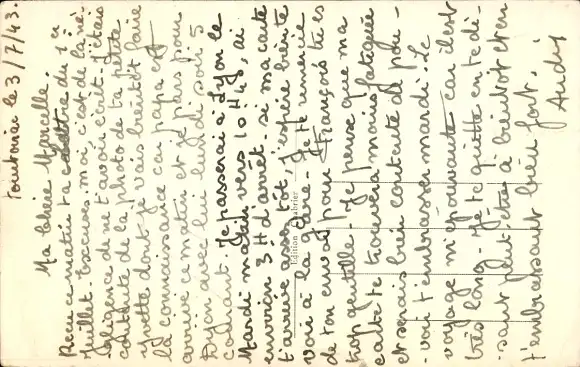 Toutonier le 3/7/43.
Ma Chère Marcelle.
Recu ce matin ta lettre du 1er
Juillet. Excuses. moi c'est de la né-
gligence de ne t'avoir écrit. J'étais
contente de la photo de ta petite
yvette dont je vais bientôt faire
la connaissance car papa est
arrivé ce matin et je pars pour
Dijon avec lui lundi soir 5
courant. Je passerai à Lyon le
Mardi matin vers 10 H 45, ai
environ 3 H d'arrêt. si ma carte
t'arrive assez tôt, j'espère bien te
voir à la gare. Je te remercie
de ton envoi pour François tu es
trop gentille. Je pense que ma
carte te trouvera moins fatiguée
et serais bien contente de pou-
-voir t'embrasser mardi. Le
voyage m'épouvante car il est
très long. Je te quitte en te di-
-sant peut-être à bientôt et en
t'embrassant bien fort.
Andrée
Edition